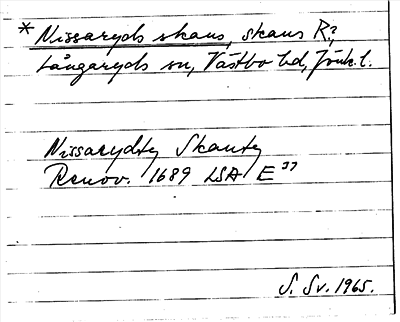 * Nissaryds skans, skans R?,
Långaryds sn, Västbo hd, Jönk.l.
Nissarydz Skantz
Renov. 1689 LSA E"
S. Sv. 1965.